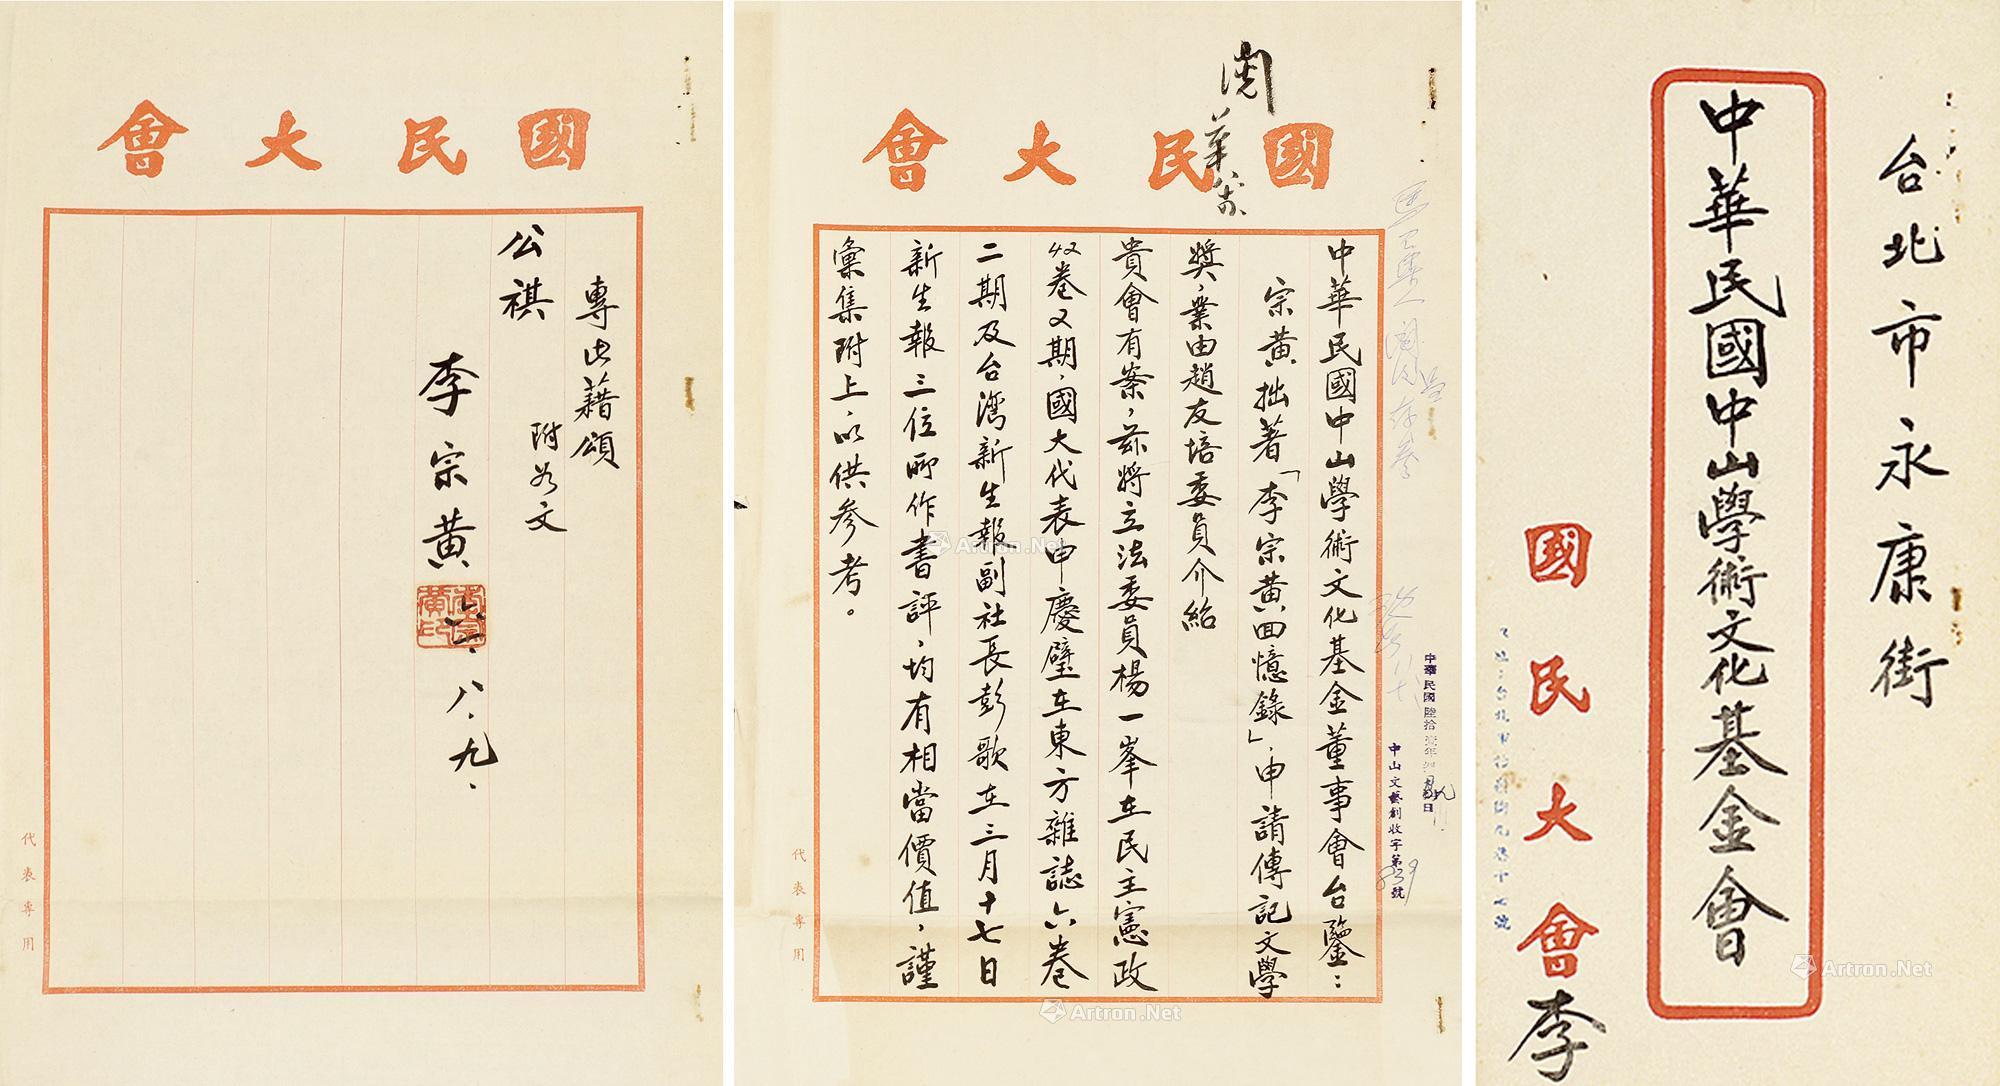 台北市永康街
中華民國中山學術文化基金會
國民大會李
國民大會
中華民國中山學術文化基金董事會台鑒：
宗黃拙著「李宗黃回憶錄」，申請傳記文學
獎，業由趙友培委員介紹
貴會有案，茲將立法委員楊一峯在民主憲政
42卷又期，國大代表申慶璧在東方雜誌六卷
二期及台灣新生報副社長彭歌在三月十七日
新生報三位所作書評，均有相當價值，謹
彙集附上，以供參考。
代表專用
中山文藝創收字第839號
國民大會
專此藉頌
公祺
附如文
李宗黃
六一．八．九．
代表專用
Artron.Net
Artron.Net
Artron.Net